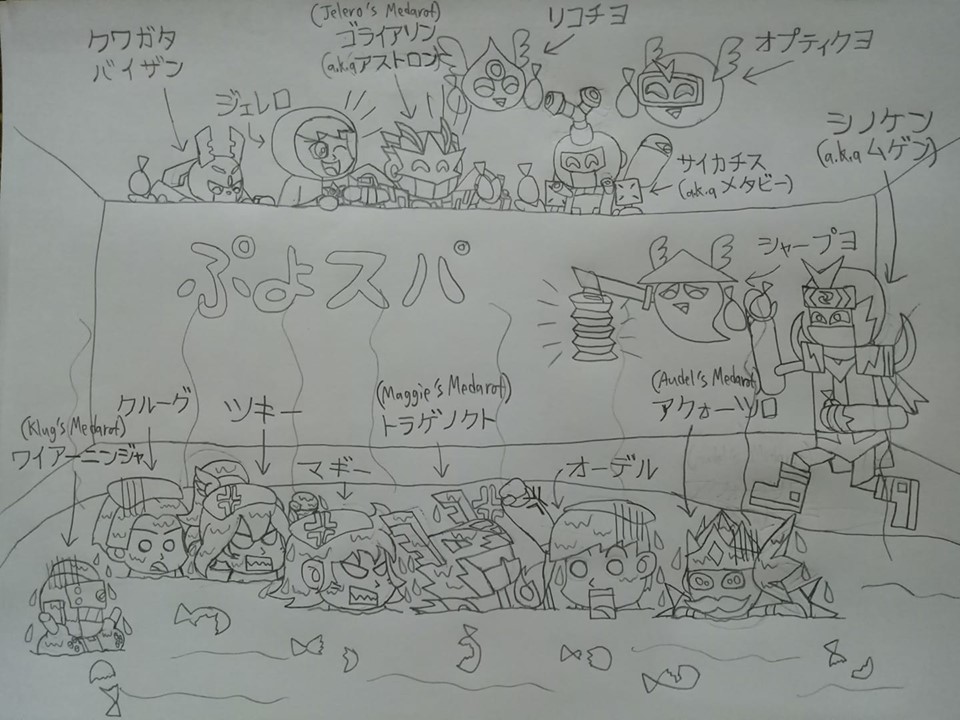 クワガタ
バイザン
ジェレロ
(Jelero's Medarot)
ゴライアソン
(a.k.a アストロン)
リコチヨ
オプティクヨ
シノケン
(a.k.a ムゲン)
サイカチス
(a.k.a メタビー)
ぷよスパ
シャープヨ
(Klug's Medarot)
ワイアーニンジャ
クルーグ
ツキー
マギー
(Maggie's Medarot)
トラゲノクト
オーデル
(Audel's Medarot)
アクォーツロ